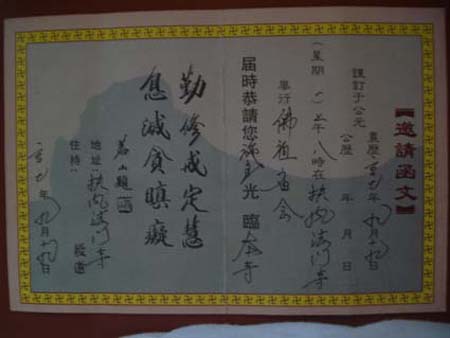 【邀請函文】
謹訂于公元
農曆: 年九月十九日
公曆 年 月 日
(星期 )上午八時在扶风法门寺
舉行佛祖 会
屆時恭請您 光 臨 寺
勤修戒定慧
息滅貪瞋癡
地址:扶风法门寺
住持: 敬邀
年九月十九日